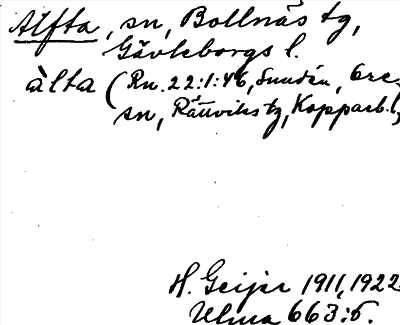 Alfta, sn, Bollnäs tg,
Gävleborgs l.
àlta (Rn. 22:1:46, Sundén, Ore
sn, Rättviks tg, Kopparb. l,
H. Geijer 1911, 1922
Ulma 663:5.